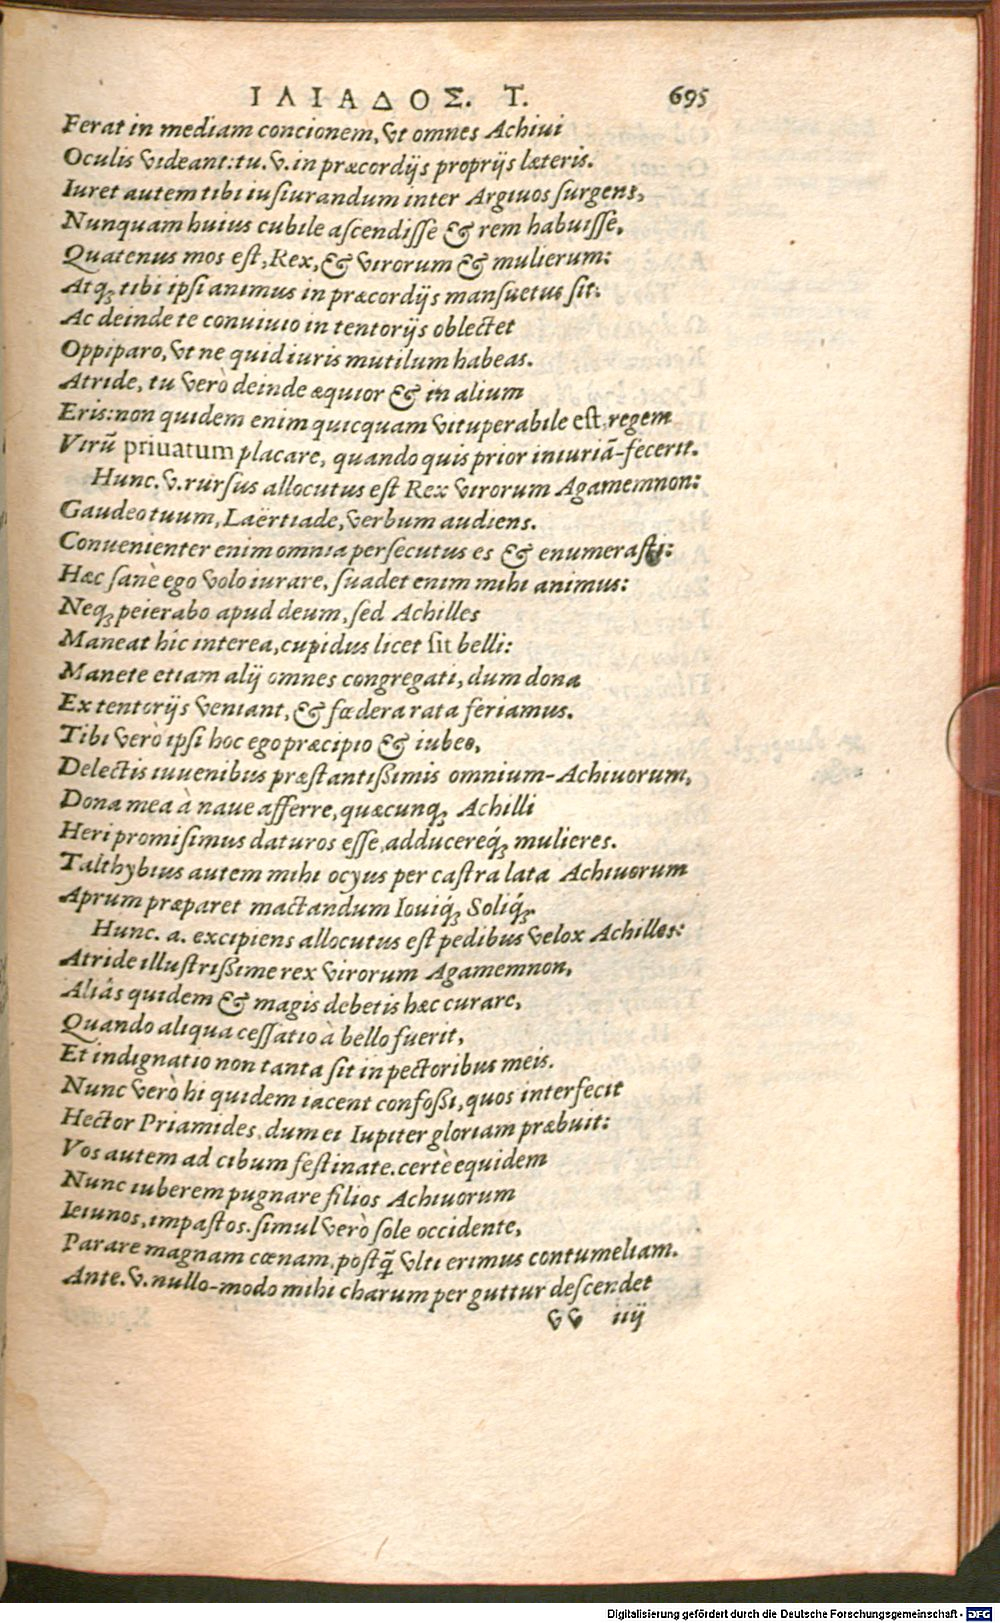 ΙΛΙΑΔΟΣ. Τ. 695
Ferat in mediam concionem, vt omnes Achiui
Oculis videant: tu. v. in præcordijs proprijs læteris.
Iuret autem tibi iusiurandum inter Argiuos surgens,
Nunquam huius cubile ascendisse & rem habuisse,
Quatenus mos est, Rex, & virorum & mulierum:
Atq; tibi ipsi animus in præcordijs mansuetus sit:
Ac deinde te conuiuio in tentorijs oblectet
Oppiparo, vt ne quid iuris mutilum habeas.
Atride, tu verò deinde æquior & in alium
Eris: non quidem enim quicquam vituperabile est, regem
Virũ priuatum placare, quando quis prior iniuriã-fecerit.
Hunc. v. rursus allocutus est Rex virorum Agamemnon:
Gaudeo tuum, Laërtiade, verbum audiens.
Conuenienter enim omnia persecutus es & enumerasti:
Hæc sanè ego volo iurare, suadet enim mihi animus:
Neq; peierabo apud deum, sed Achilles
Maneat hic interea, cupidus licet sit belli:
Manete etiam alij omnes congregati, dum dona
Ex tentorijs veniant, & fœdera rata feriamus.
Tibi verò ipsi hoc ego præcipio & iubeo,
Delectis iuuenibus præstantißimis omnium-Achiuorum,
Dona mea à naue afferre, quæcunq; Achilli
Heri promisimus daturos esse, adducereq́; mulieres.
Talthybius autem mihi ocyus per castra lata Achiuorum
Aprum præparet mactandum Iouiq́; Soliq́;.
Hunc. a. excipiens allocutus est pedibus velox Achilles:
Atride illustrißime rex virorum Agamemnon,
Aliâs quidem & magis debetis hæc curare,
Quando aliqua cessatio à bello fuerit,
Et indignatio non tanta sit in pectoribus meis.
Nunc verò hi quidem iacent confoßi, quos interfecit
Hector Priamides, dum ei Iupiter gloriam præbuit:
Vos autem ad cibum festinate. certè equidem
Nunc iuberem pugnare filios Achiuorum
Ieiunos, impastos. simul verò sole occidente,
Parare magnam cœnam, postq̃ vlti erimus contumeliam.
Ante. v. nullo-modo mihi charum per guttur descendet
vv iiij
Digitalisierung gefördert durch die Deutsche Forschungsgemeinschaft - DFG